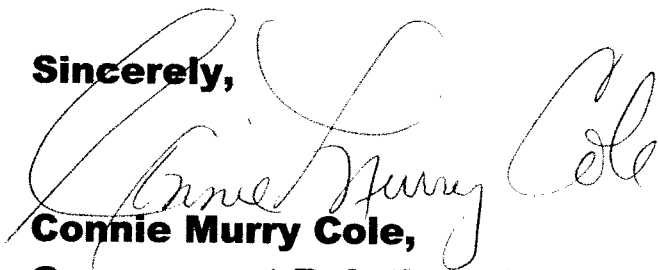 Sincerely,
Connie Murry Cole
Connie Murry Cole,